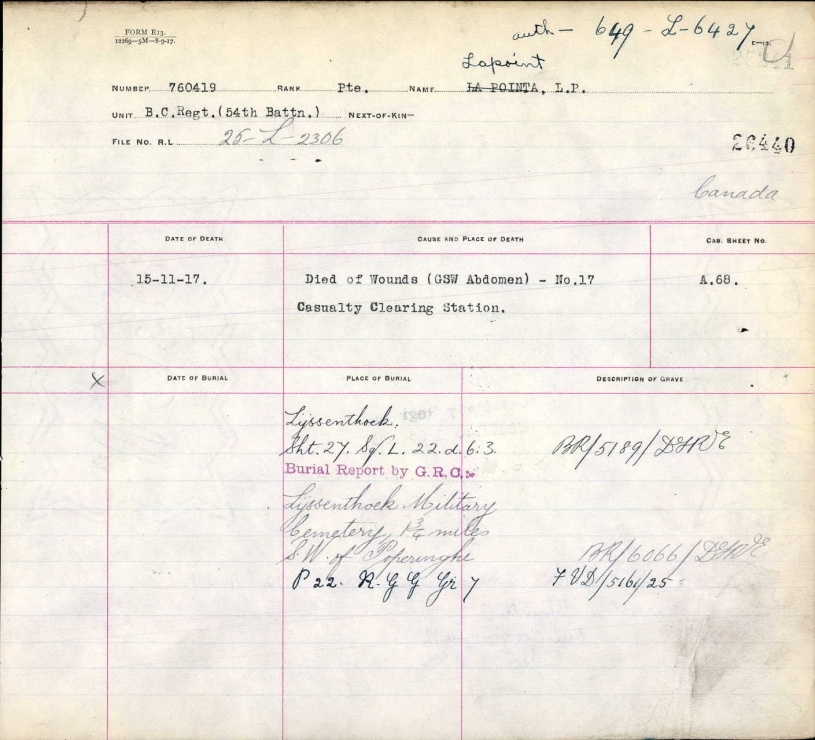 FORM E13.
12269—5M—8-9-17.
auth— 649-L-6427
E-13.
Lapoint
NUMBER 760419 RANK Pte. NAME LA POINTA, L.P.
UNIT B.C.Regt.(54th Battn.) NEXT-OF-KIN—
FILE NO. R.L. 25-L-2306
26440
Canada
DATE OF DEATH CAUSE AND PLACE OF DEATH CAB. SHEET NO.
15-11-17. Died of Wounds (GSW Abdomen) - No.17 A.68.
Casualty Clearing Station.
X DATE OF BURIAL PLACE OF BURIAL DESCRIPTION OF GRAVE
Lijssenthoek.
Sht. 27. Sq. L. 22. d. 6. 3. BR/5189/
Burial Report by G.R.C:-
Lijssenthoek Military
Cemetery, 1 3/4 miles
S.W. of Poperinghe BR/6066/
P 22. R. G G Gr 7 7VD/5161/25